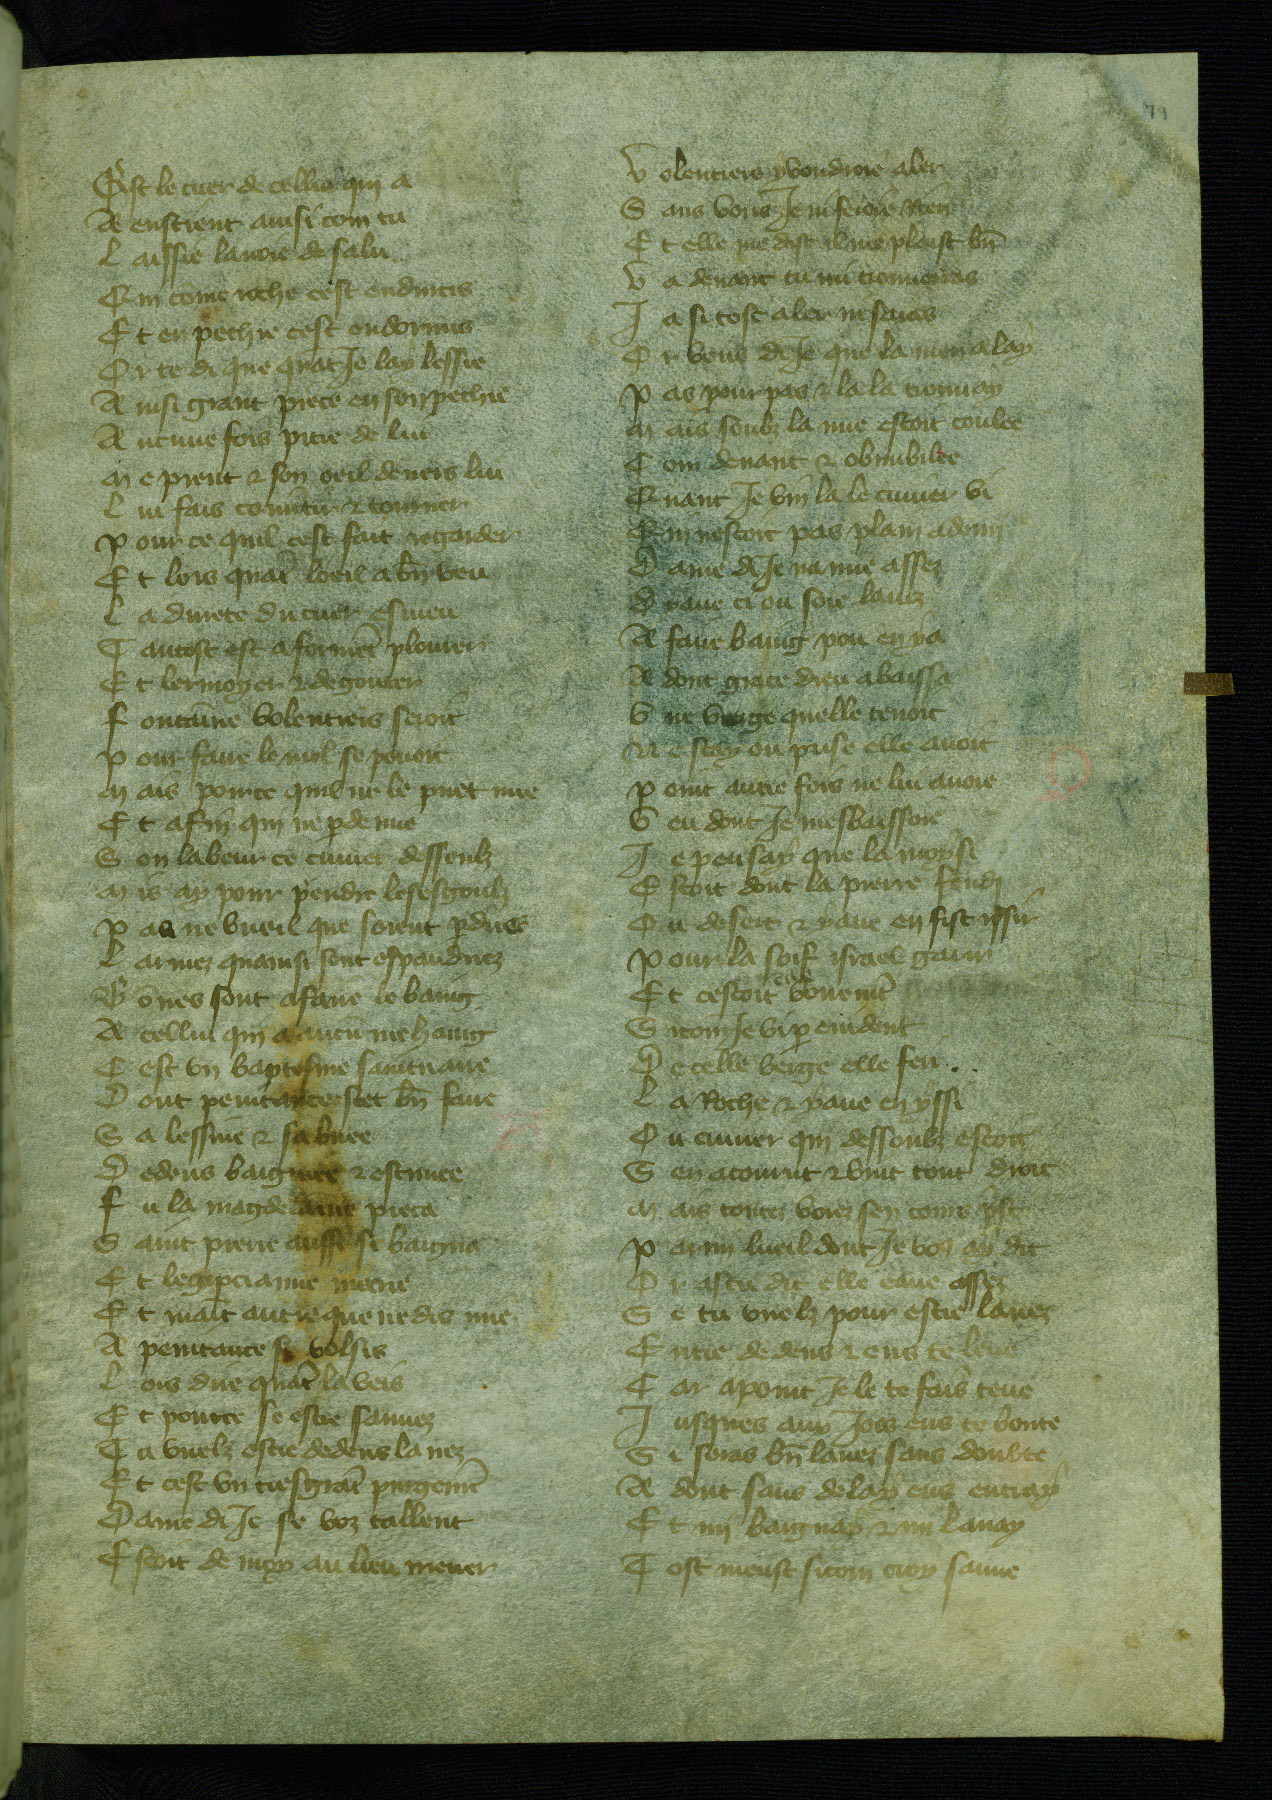 79
Cest le cuer de cellui qui a
A enscient ainsi com tu
L aissie la voie de salu
Qui com roche cest endurcis
E t en pechie cest endormis
O r te di que quāt Je lay lessie
A insi grant piece en son pechie
A ucune fois pitie de lui
M e prent & son oeil deuers lui
L ui fais & tourner
P our ce quil cest fait regarder
E t lors quāt loeil a bn̄ veu
L a durete du cuer esmeu
T antost est a formēt plourer
E t lermoyer & degouter
F ontaine volentiers seroit
P our faire le mol se pouoit
M ais pource quil ne le puet mie
E t afin qui ne pde mie
S on labeur ce cuuier dessoulz
M is ay pour prendre les esgoulz
P as ne vueil que soient pdues
L armez quainsi sont espandues
B ōnes sont a faire le baing
A cellui qui a aucū mehaing
C est vn baptesme saintuaire
D ont penitance scet bn̄ faire
S a lessiue & sa buee
D edens baignee & estuuee
F u la magdelaine pieca
S aint pierre aussi si baigna
E t legipcianne marie
E t maīt autre que ne dis mie
A penitance se volsis
L ors due quāt la veis
E t pource se estre sauuez
T u vuelz estre dedens lauez
E t cest vn tresgrāt purgemēt
Dame di Je se voz tallent
E stoit de moy au lieu mener
V olentiers y voudroie aler
S ans vous Je ni feroie rien
E t elle me dist il me plaist bn̄
V a deuant tu mi trouueras
J a si tost aler ni saras
O r veue di Je que la men alay
P as pour pas & la la trouuay
M ais soubz la nue estoit coulee
C om deuant & obnubilee
Quant Je vin la le cuuier vi
Qui nestoit pas plain a demi
D ame di Je na mie assez
D yaue ci ou soie lauez
A faire baing pou en ya
A dont grace dieu abaissa
V ne verge quelle tenoit
N e scay ou prise elle auoit
P oint autre fois ne lui auoie
V eu dont Je mesbaissoie
J e pensay que la moysi
E stoit dont la pierre fendi
O u desert & yaue en fist yssir
P our la soif israel garir
E t cestoit celle vrement
S icom Je vi p euident
D e celle verge elle feri
L a Roche & yaue en yssi
O u cuuier qui dessoubz estoit
S en acourut & vint tout droit
M ais toutez voiez son cours prist
P armi lueil dont Je voz ay dit
O r astu dit elle eaue assez
S e tu vuelz pour estre lauez
E ntre dedens & ens te leue
C ar apoint Je le te fais teue
J usques aux ens te boute
S i seras bn̄ lauez sans doubte
A dont sans delay ens entray
E t mi baignay & mi lauay
T ost meust sicom croy sanne